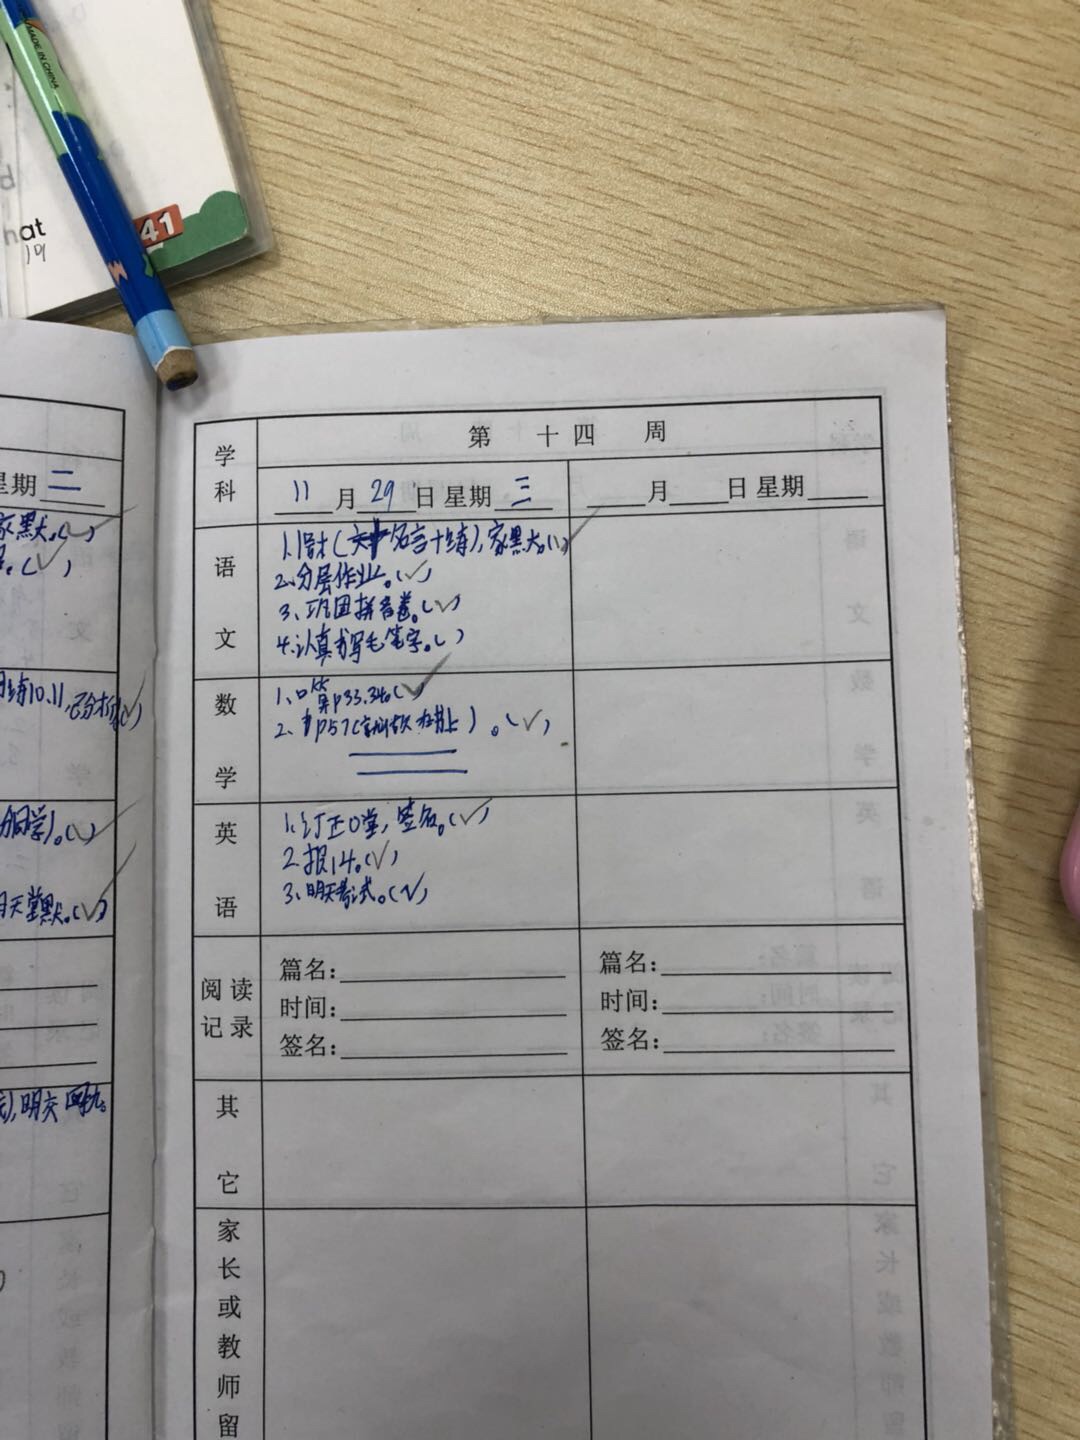 MADE IN CHINA
41
at
星期 二
家默。(✓)
。(✓)
练10.11,已分析(✓)
同学)。(✓)
明天堂默。(✓)
明交
学科
第 十四 周
11月29日 星期三
月 日 星期
语文
1.背(名言十练),家默。(✓)
2.分层作业。(✓)
3、班团拼音卷。(✓)
4.认真书写毛笔字。( )
数学
1、口算p33.34。(✓)
2、p57 。(✓)
英语
1.订正0堂,签名。(✓)
2.报14。(✓)
3、明天考试。(✓)
阅读记录
篇名:
时间:
签名:
篇名:
时间:
签名:
其它
家长或教师留